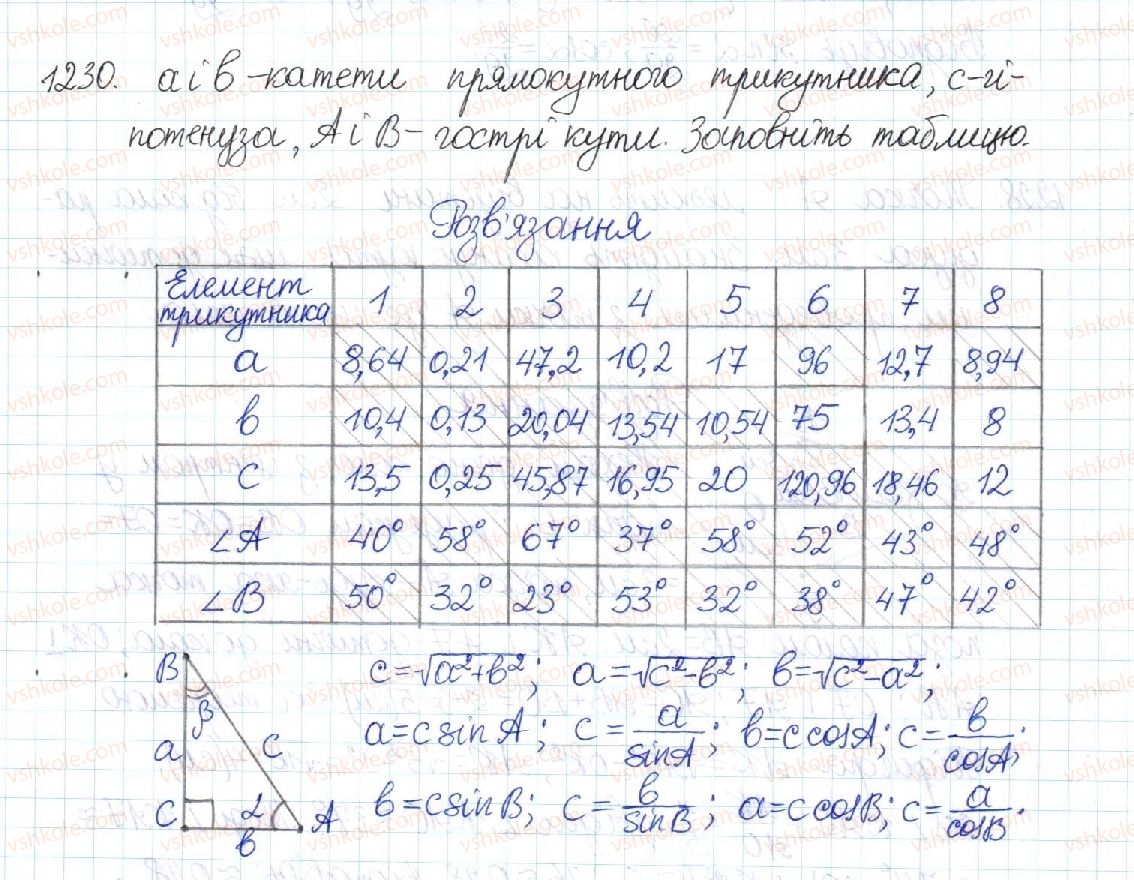 1230. а і в – катети прямокутного трикутника, с – гі-
потенуза, А і В – гострі кути. Заповніть таблицю.
Розв'язання
Елемент трикутника 1 2 3 4 5 6 7 8
а 8,64 0,21 47,2 10,2 17 96 12,7 8,94
в 10,4 0,13 20,04 13,54 10,54 75 13,4 8
с 13,5 0,25 45,87 16,95 20 120,96 18,46 12
∠А 40° 58° 67° 37° 58° 52° 43° 48°
∠В 50° 32° 23° 53° 32° 38° 47° 42°
c=√a²+в²; a=√c²-в²; в=√c²-a²;
a=c sin A; c=a/sinA; в=c cosA; c=в/cosA;
в=c sinB; c=в/sinB; a=c cosB; c=a/cosB.
B
β
a
c
C
α
A
в
vshkole.com